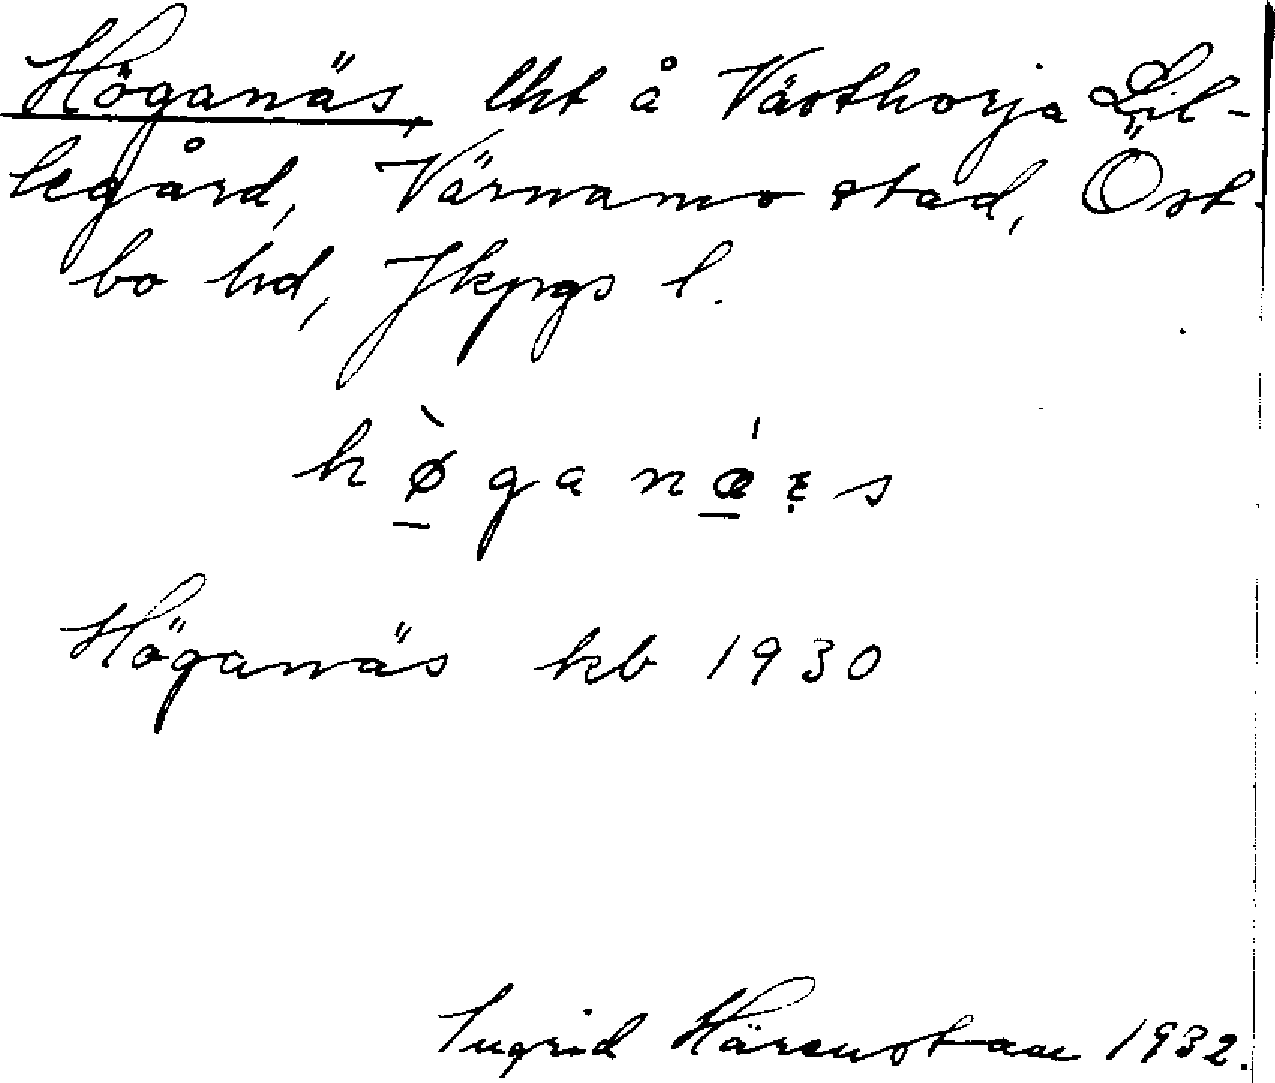 Höganäs, lht å Västhorja Lil-
legård, Värnamo stad, Öst-
bo hd, Jkpgs l.
hø̀ganǽːs
Höganäs kb 1930
Ingrid 1932.